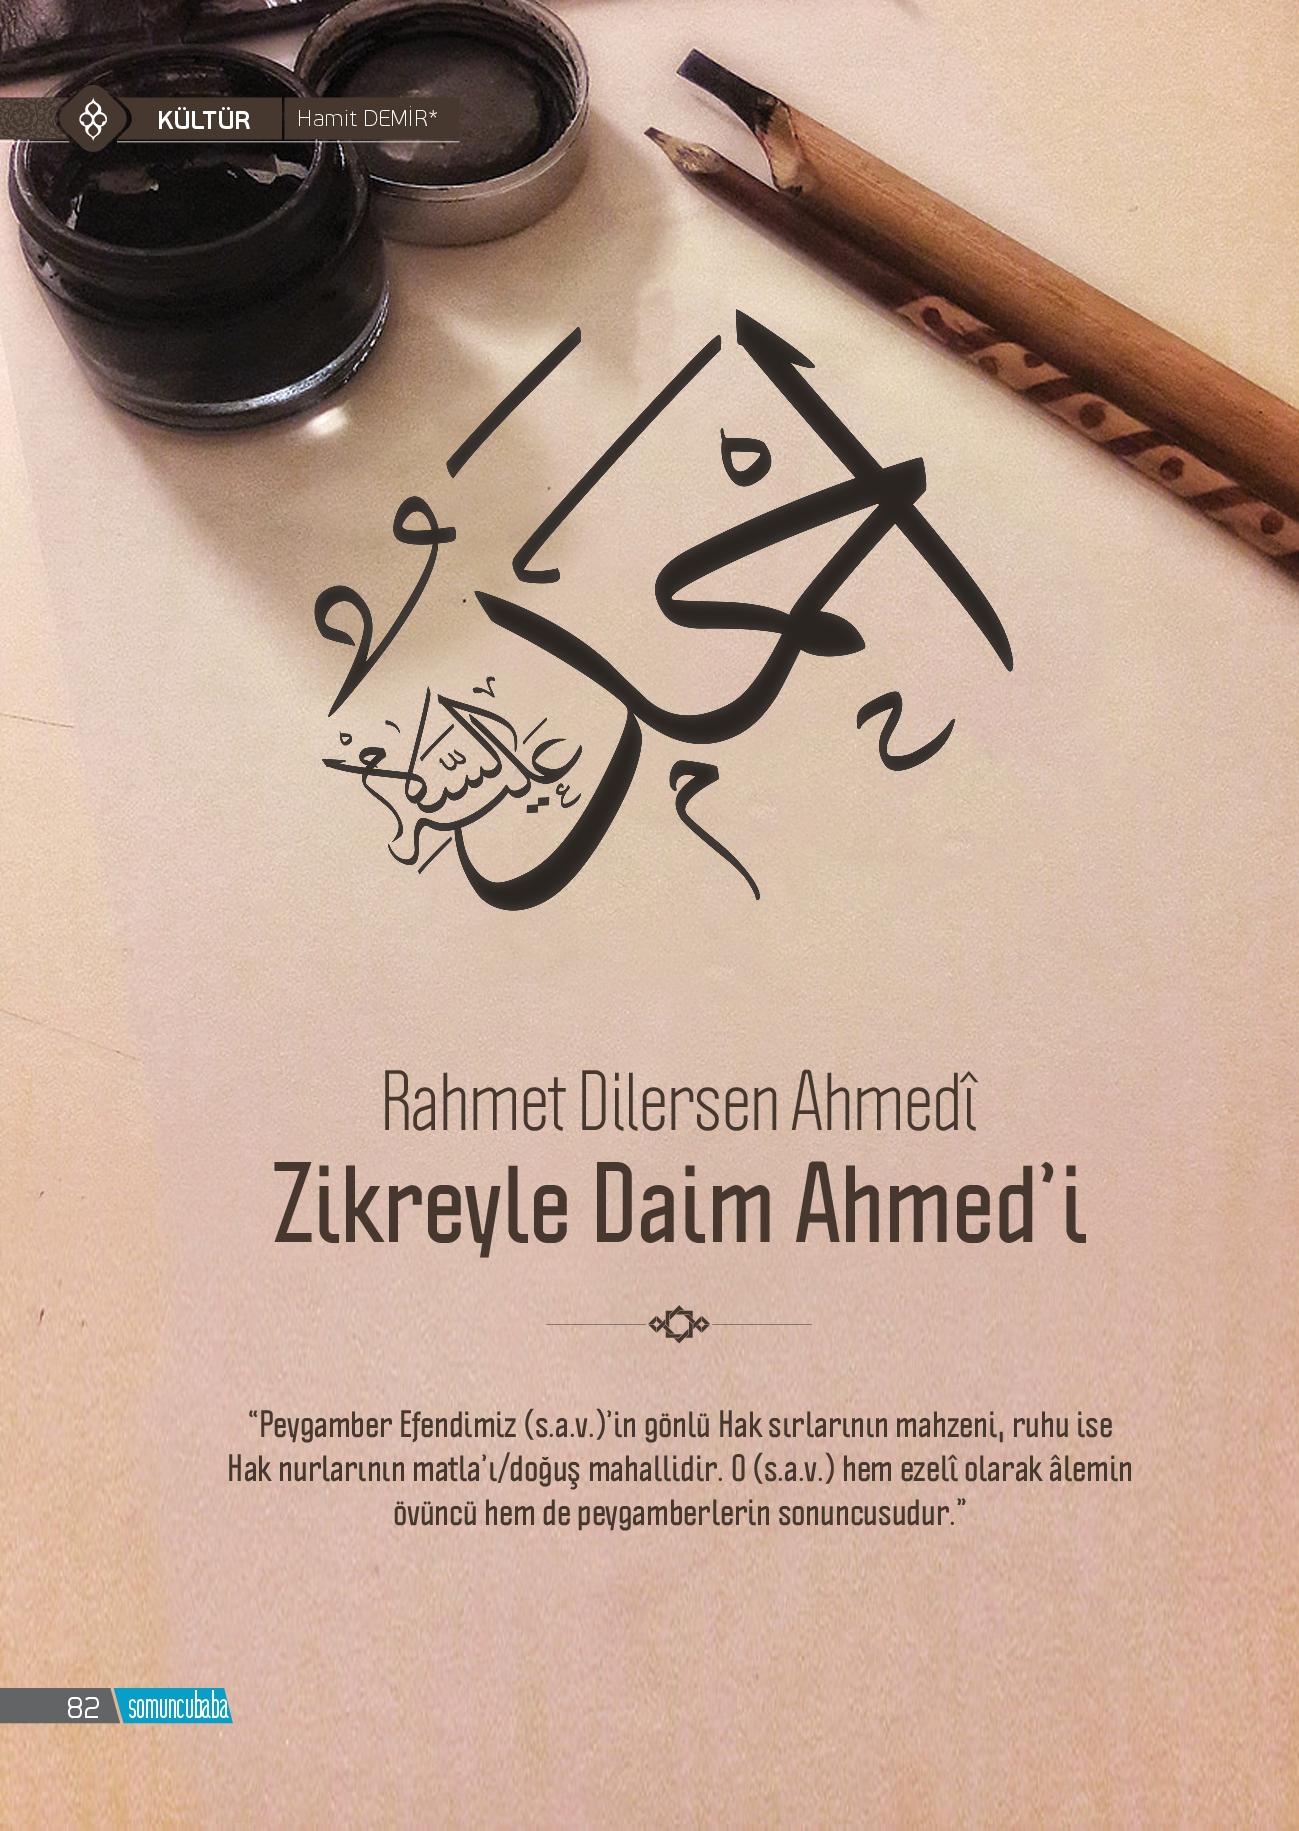 KÜLTÜR
Hamit DEMİR*
أحمد
عليه السلام
Rahmet Dilersen Ahmedî
Zikreyle Daim Ahmed’i
“Peygamber Efendimiz (s.a.v.)’in gönlü Hak sırlarının mahzeni, ruhu ise
Hak nurlarının matla’ı/doğuş mahallidir. O (s.a.v.) hem ezelî olarak âlemin
övüncü hem de peygamberlerin sonuncusudur.”
82
somuncubaba